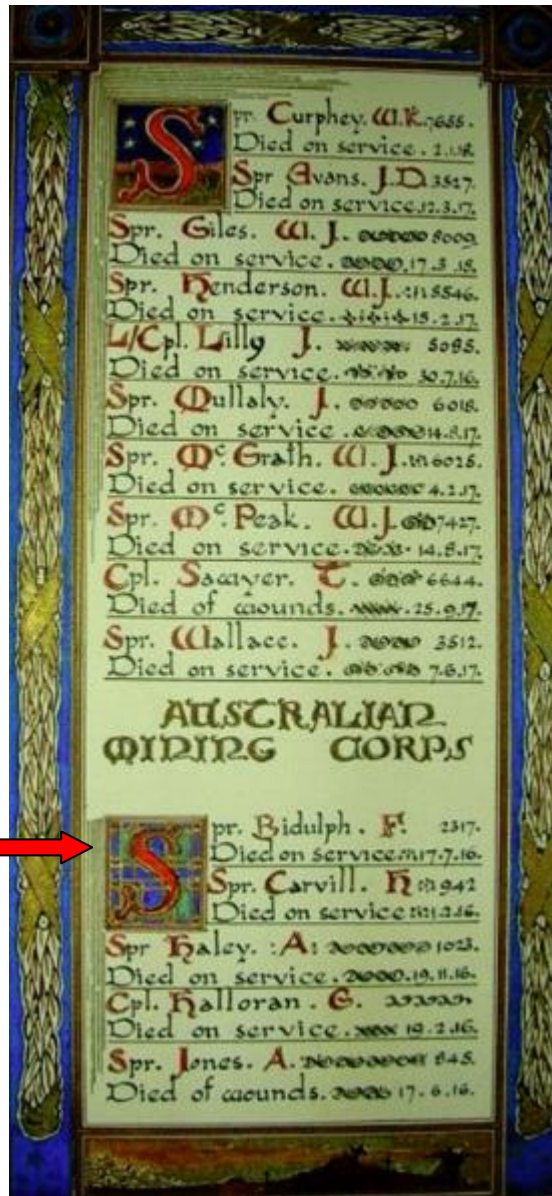 Spr. Curphey. W.R. 7655.
Died on service. 2.1.18.
Spr Evans. J.D. 3527.
Died on service. 12.3.17.
Spr. Giles. W.J. 8009
Died on service. 17.3.18.
Spr. Henderson. W.J. 5546.
Died on service. 15.2.17.
L/Cpl. Lilly J. 5085.
Died on service. 30.7.16.
Spr. Mullaly. J. 6018.
Died on service. 14.8.17.
Spr. Mc.Grath. W.J. 6025.
Died on service. 4.2.17.
Spr. Mc.Peak. W.J. 7427.
Died on service. 14.8.17.
Cpl. Sawyer. T. 6644.
Died of wounds. 25.9.17.
Spr. Wallace. J. 3512.
Died on service. 7.6.17.
AUSTRALIAN
MINING CORPS
Spr. Bidulph. F. 2317.
Died on service. 17.7.16.
Spr. Carvill. H 942
Died on service 2.16.
Spr Haley. A: 1023.
Died on service. 19.11.16.
Cpl. Halloran. G.
Died on service. 19.2.16.
Spr. Jones. A. 845.
Died of wounds. 17.6.16.